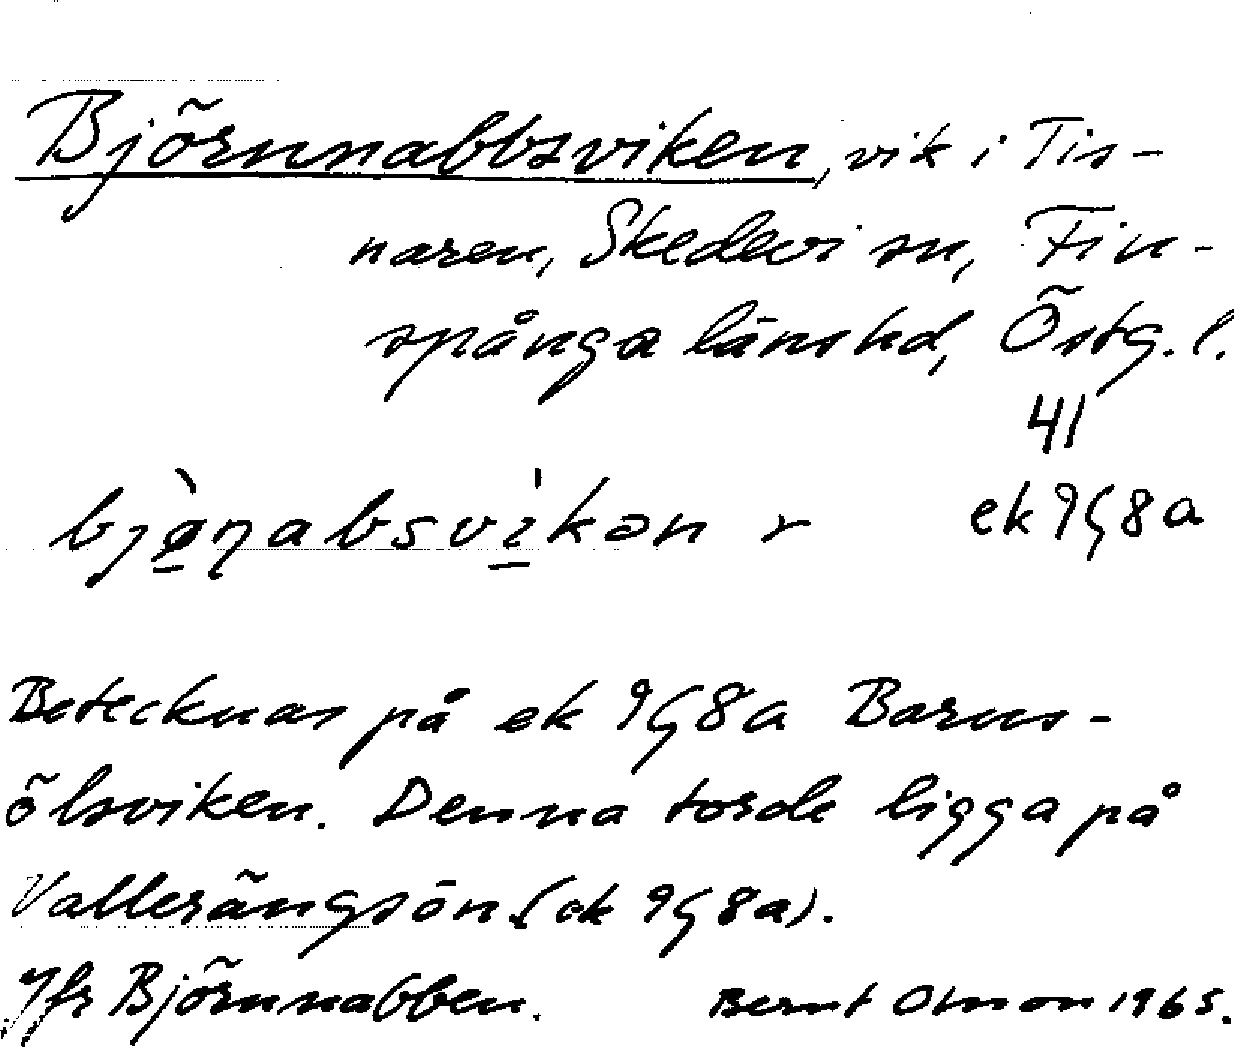 Björnnabbsviken, vik i Tis-
naren, Skedevi sn, Fin-
spånga länshd, Östg. l.
41
bjø̀ṇabsvìkən r
ek 9G8a
Betecknas på ek 9G8a Barns-
ölsviken. Denna torde ligga på
Vallerängsön (ek 9G8a).
Jfr Björnnabben.
Bernt Olsson 1965.